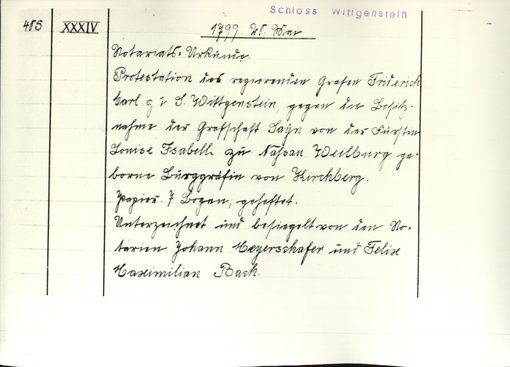 Schloss Wittgenstein
485 XXXIV 1799. 25. Mai
Notariats-Urkunde.
Protestation des regierenden Grafen Friderich
Karl z. S. Wittgenstein gegen die Besitz-
nahme der Grafschaft Sayn von der Fürstin
Louise Isabelle zu Nassau Weilburg ge-
borne Burggräfin von Kirchberg.
Papier. 7 Bogen, geheftet.
Unterzeichnet und besiegelt von den No-
tarien Johann Meyerschafer und Felix
Maximilian Bach.